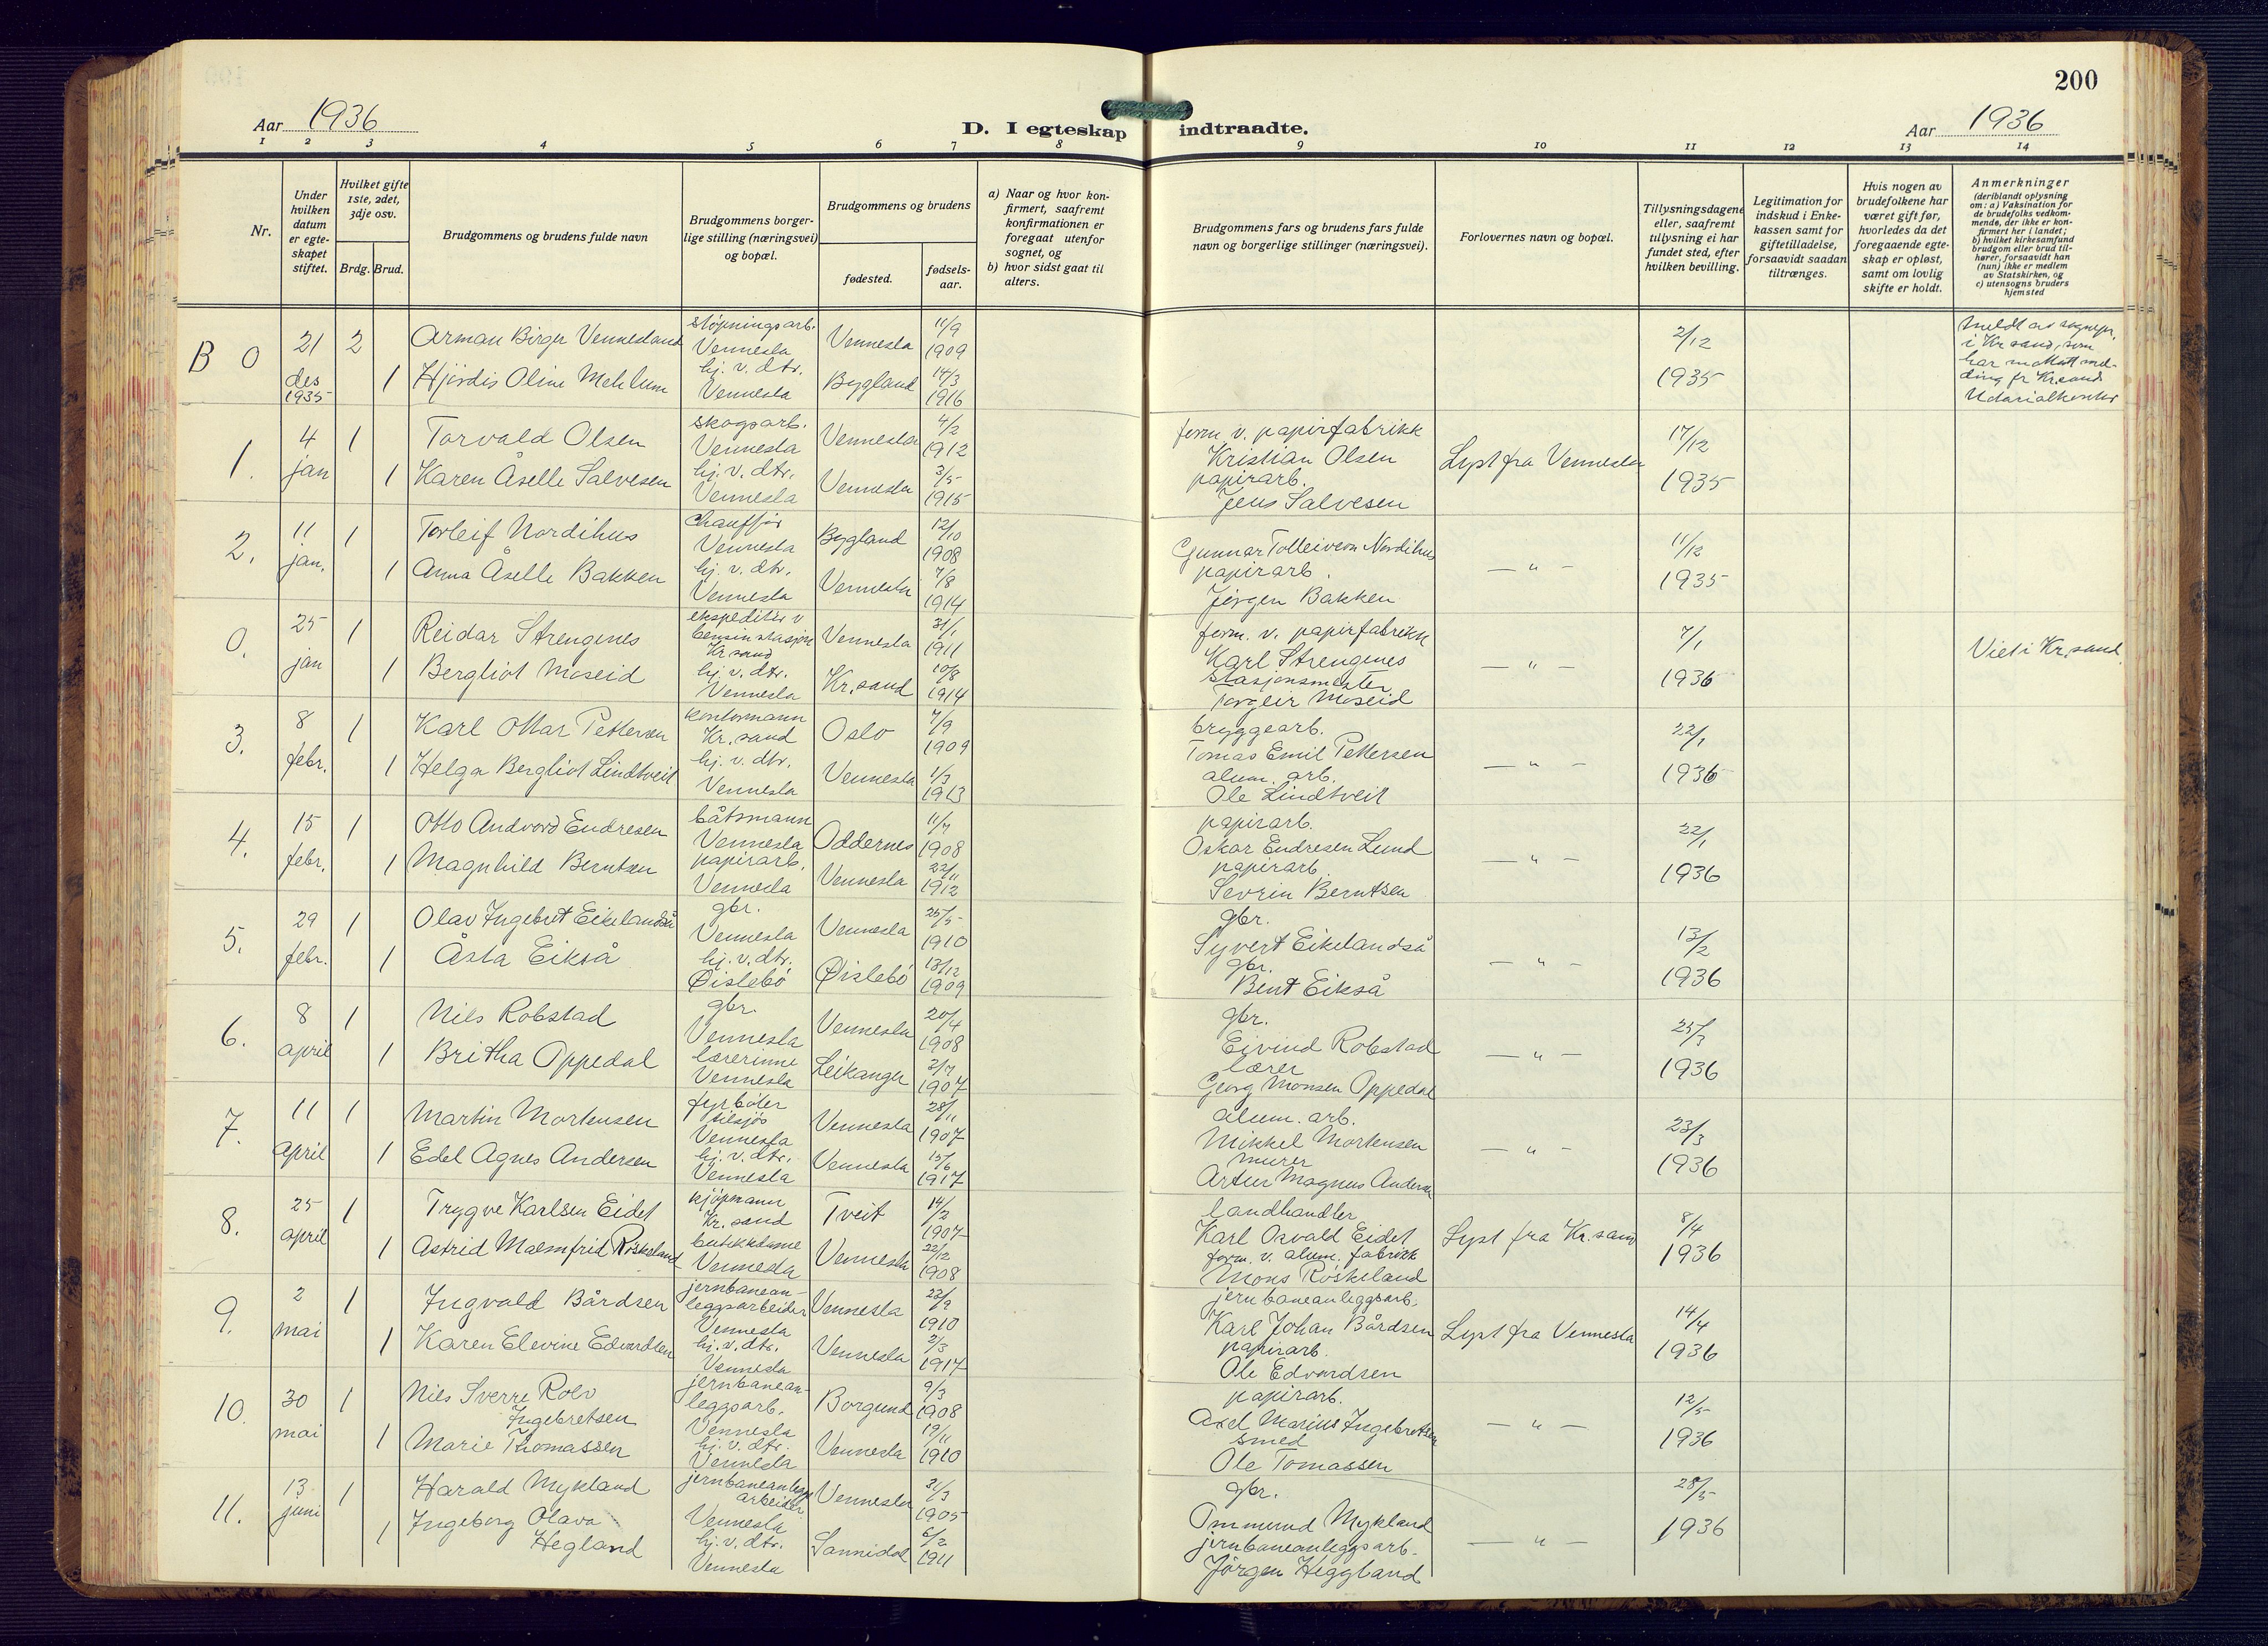 200
Aar 1936
D. I egteskap indtraadte.
Aar 1936
1 2 3 4 5 6 7 8 9 10 11 12 13 14
Nr.
Under hvilken datum er egteskapet stiftet.
Hvilket gifte 1ste, 2det, 3dje osv.
Brdg. Brud.
Brudgommens og brudens fulde navn
Brudgommens borgerlige stilling (næringsvei) og bopæl.
Brudgommens og brudens
fødested.
fødselsaar.
a) Naar og hvor konfirmert, saafremt konfirmationen er foregaat utenfor sognet, og
b) hvor sidst gaat til alters.
Brudgommens fars og brudens fars fulde navn og borgerlige stillinger (næringsvei).
Forlovernes navn og bopæl.
Tillysningsdagene eller, saafremt tillysning ei har fundet sted, efter hvilken bevilling.
Legitimation for indskud i Enkekassen samt for giftetilladelse, forsaavidt saadan tiltrænges.
Hvis nogen av brudefolkene har været gift før, hvorledes da det foregaaende egteskap er opløst, samt om lovlig skifte er holdt.
Anmerkninger
(deriblandt oplysning om: a) Vaksination for de brudefolks vedkommende, der ikke er konfirmert her i landet;
b) hvilket kirkesamfund brudgom eller brud tilhører, forsaavidt han (hun) ikke er medlem av Statskirken, og
c) utensogns bruders hjemsted
B 0 21 des 1935 2 Arman Birger Vennesland støpningsarb. Vennesla Vennesla 11/9 1909
1 Hjördis Oline Mehlum hj. v. dtr. Vennesla Bygland 14/3 1916
2/12 1935
Meldt av sognepr.
i Kr.sand, som
har mottatt mel-
ding fr Kr.sand
1. 4 jan 1 Torvald Olsen skogsarb. Vennesla Vennesla 4/2 1912
1 Karen Åselle Salvesen hj. v. dtr. Vennesla Vennesla 3/5 1915
form. v. papirfabrikk
Kristian Olsen
papirarb.
Jens Salvesen
Lyst fra Vennesla 17/12 1935
2. 11 jan. 1 Torleif Nordihus Chauffør Vennesla Bygland 12/10 1908
1 Anna Åselle Bakken hj. v. dtr. Vennesla Vennesla 7/8 1914
Gunnar Tolleivson Nordihus
papirarb.
Jörgen Bakken
— " — 11/12 1935
0. 25 jan 1 Reidar Strengenes ekspeditør v bensinstasjon Kr.sand Vennesla 31/1 1911
1 Bergliot Moseid hj. v. dtr. Vennesla Kr.sand 10/8 1914
form. v. papirfabrikk
Karl Strengenes
Stasjonsmester
Torgeir Moseid
— " — 7/1 1936
Viet i Kr.sand
3. 8 febr. 1 Karl Ottar Pettersen kontormann Kr.sand Oslo 7/9 1909
1 Helga Bergliot Lindtveit hj. v. dtr. Vennesla Vennesla 1/3 1913
bryggearb.
Tomas Emil Pettersen
alum. arb.
Ole Lindtveit
— " — 22/1 1936
4. 15 febr. 1 Otto Andvord Endresen båtsmann Vennesla Oddernes 11/7 1908
1 Magnhild Berntsen papirarb. Vennesla Vennesla 22/11 1912
papirarb.
Oskar Endresen Lund
papirarb
Sevrin Berntsen
— " — 22/1 1936
5. 29 febr. 1 Olav Ingebret Eikelandså gbr. Vennesla Vennesla 25/5 1910
1 Åsta Eikså hj. v. dtr. Øislebö Øislebö 13/12 1909
gbr.
Syvert Eikelandså
gbr.
Bent Eikså
— " — 13/2 1936
6. 8 april 1 Nils Robstad gbr. Vennesla Vennesla 20/4 1908
1 Britha Oppedal lærerinne Vennesla Leikanger 2/7 1907
gbr.
Eivind Robstad
lærer
Georg Monsen Oppedal
— " — 25/3 1936
7. 11 april 1 Martin Mortensen fyrböter tilsjös Vennesla Vennesla 28/11 1907
1 Edel Agnes Andersen hj. v. dtr. Vennesla Vennesla 15/6 1917
alum. arb.
Mikkel Mortensen
murer
Artur Magnus Andersen
— " — 23/3 1936
8. 25 april 1 Trygve Karlsen Eidet kjöpmann Kr.sand Tveit 14/2 1907
1 Astrid Malmfrid Röskeland butikkdame Vennesla Vennesla 22/12 1908
landhandler
Karl Osvald Eidet
form. v. alum. fabrikk
Mons Röskeland
Lyst fra Kr.sand 8/4 1936
9. 2 mai 1 Ingvald Bårdsen jernbanean-leggsarbeider Vennesla Vennesla 22/9 1910
1 Karen Elevine Edvardsen hj. v. dtr. Vennesla Vennesla 2/3 1917
jernbaneanleggsarb.
Karl Johan Bårdsen
papirarb.
Ole Edvardsen
Lyst fra Vennesla 14/4 1936
10. 30 mai 1 Nils Sverre Rolv Ingebretsen jernbanean-leggsarb. Vennesla Borgund 9/3 1908
1 Marie Thomassen hj. v. dtr. Vennesla Vennesla 19/11 1910
papirarb.
Axel Marius Ingebretsen
smed
Ole Tomassen
— " — 12/5 1936
11. 13 juni 1 Harald Mykland jernbaneanleggsarbeider Vennesla Vennesla 31/3 1905
1 Ingeborg Olava Hegland hj. v. dtr. Vennesla Sannidal 6/2 1911
gbr.
Ommund Mykland
jernbaneanleggsarb.
Jörgen Heggland
— " — 28/5 1936